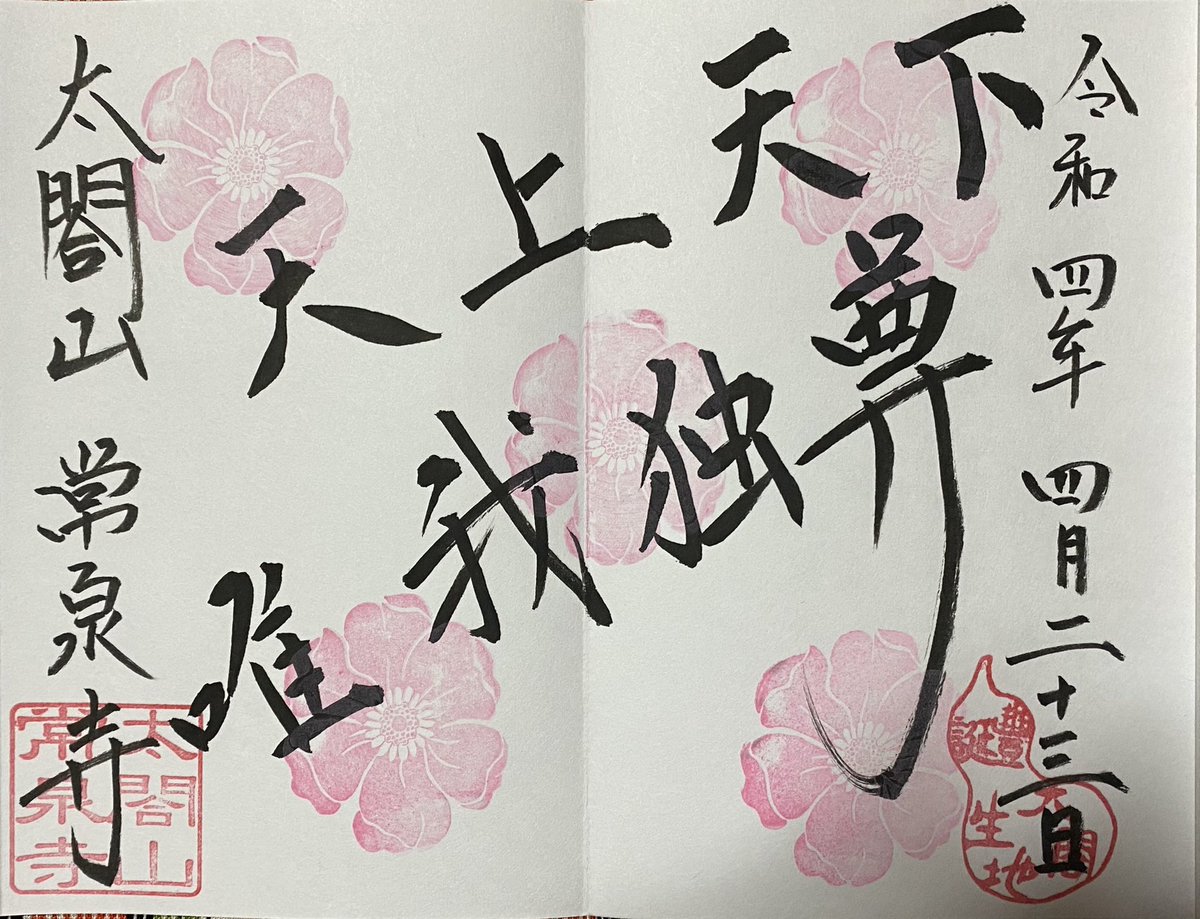 令和四年 四月二十三日
天上天下
唯我独尊
太閤山 常泉寺
豐太閤
誕生地
太閤山
常泉寺